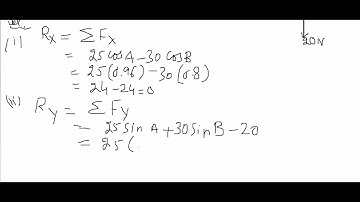 20N
(i) Rx = ΣFx
= 25 cosA - 30 cosB
= 25(0.96) - 30(0.8)
= 24 - 24 = 0
(ii) Ry = ΣFy
= 25 sin A + 30 sin B - 20
= 25(